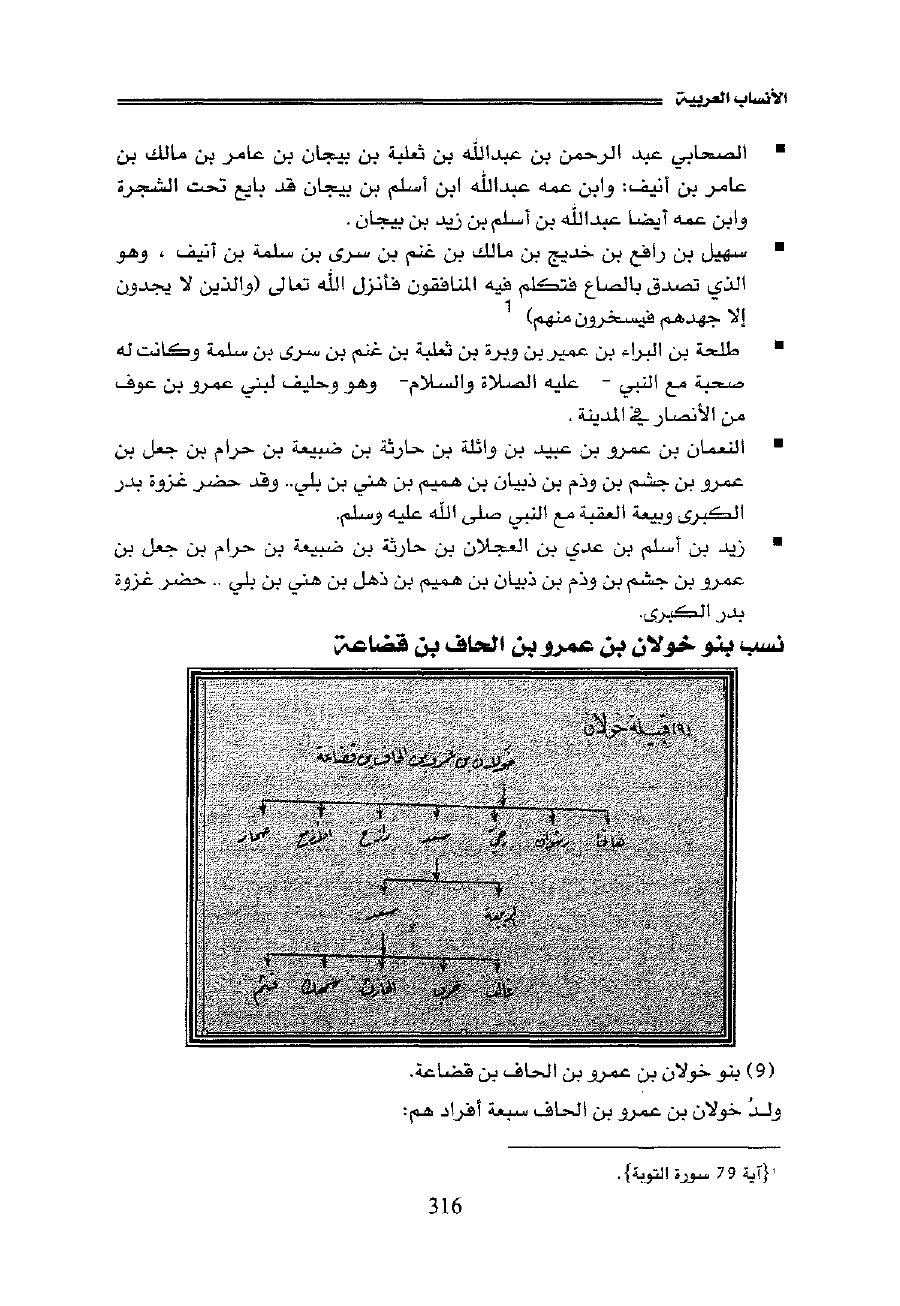 الأنساب العربية
▪ الصحابي عبد الرحمن بن عبدالله بن ثعلبة بن بيجان بن عامر بن مالك بن
عامر بن أنيف: وابن عمه عبدالله ابن أسلم بن بيجان قد بايع تحت الشجرة
وابن عمه أيضا عبدالله بن أسلم بن زيد بن بيجان .
▪ سهيل بن رافع بن خديج بن مالك بن غنم بن سرى بن سلمة بن أنيف ، وهو
الذي تصدق بالصاع فتكلم فيه المنافقون فأنزل الله تعالى (والذين لا يجدون
إلا جهدهم فيسخرون منهم) 1
▪ طلحة بن البراء بن عمير بن وبرة بن ثعلبة بن غنم بن سرى بن سلمة وكانت له
صحبة مع النبي - عليه الصلاة والسلام- وهو وحليف لبني عمرو بن عوف
من الأنصار في المدينة .
▪ النعمان بن عمرو بن عبيد بن وائلة بن حارثة بن ضبيعة بن حرام بن جعل بن
عمرو بن جشم بن وذم بن ذبيان بن هميم بن هني بن بلي.. وقد حضر غزوة بدر
الكبرى وبيعة العقبة مع النبي صلى الله عليه وسلم.
▪ زيد بن أسلم بن عدي بن العجلان بن حارثة بن ضبيعة بن حرام بن جعل بن
عمرو بن جشم بن وذم بن ذبيان بن هميم بن ذهل بن هني بن بلي .. حضر غزوة
بدر الكبرى.
نسب بنو خولان بن عمرو بن الحاف بن قضاعة
(٩) قبيلة خولان
خولان بن عمرو بن الحاف بن قضاعة
هانئ رشوان حي سعد رازح الأزمع صحار
ربيعة سعد
غالب حرب
(9) بنو خولان بن عمرو بن الحاف بن قضاعة.
ولدُ خولان بن عمرو بن الحاف سبعة أفراد هم:
١ {آية 79 سورة التوبة}.
316